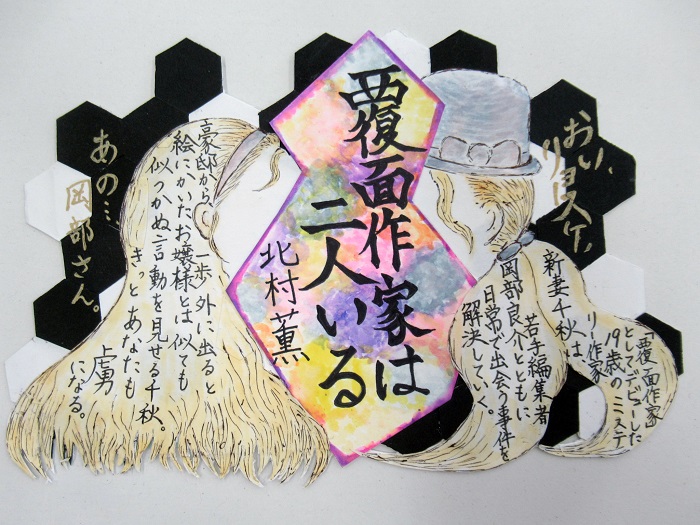 覆面作家は
二人いる
北村薫
おい、
リョースケ。
覆面作家
としてデビューした
19歳のミステ
リー作家
新妻千秋は、
若手編集者
岡部良介とともに
日常で出会う事件を
解決していく。
あの…
岡部さん。
豪邸から一歩外に出ると
絵にかいたお嬢様とは似ても
似つかぬ言動を見せる千秋、
きっとあなたも
虜
になる。